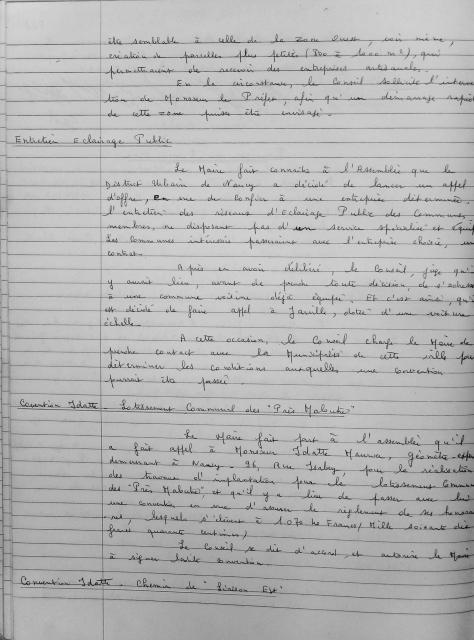 être semblable à celle de la zone Ouest, voir même,
création de parcelles plus petites (800 à 1000 m2), qui
permettraient de recevoir des entreprises artisanales.
En la circonstance, le Conseil sollicite l'interven
tion de Monsieur le Préfet, afin qu'un démarrage rapide
de cette zone puisse être envisagé.
Entretien Eclairage Public
Le Maire fait connaître à l'Assemblée que le
District Urbain de Nancy a décidé de lancer un appel
d'offre, en vue de confier à une entreprise déterminée
l'entretien des réseaux d'Eclairage Public des Communes
membres, ne disposant pas d'un service spécialisé et équip
Les Communes intéressées passeraient avec l'entreprise choisie, un
contrat.
Après en avoir délibéré, le Conseil, juge qu'
y aurait lieu, avant de prendre toute décision, de s'adress
à une commune voisine déjà équipée. Et c'est ainsi, qu'i
est décidé de faire appel à Jarville, dotée d'une voiture
échelle.
A cette occasion, le Conseil charge le Maire de
prendre contact avec la Municipalité de cette ville pou
déterminer les conditions auxquelles une Convention
pourrait être passée
Convention Idatte - Lotissement Communal des "Près Maloute"
Le Maire fait part à l'assemblée qu'il
a fait appel à Monsieur Idatte Maurice, géomètre-exper
demeurant à Nancy - 96, Rue Isabey, pour la réalisation
des travaux d'implantation pour le lotissement Commu
des "Près Maloute", et qu'il y a lieu de passer avec lui
une convention en vue d'assurer le règlement de ses honorai
res, lesquels s'élèvent à 1.070 40 Francs (Mille soixante dix
francs quarante centimes)
Le Conseil se dit d'accord, et autorise le Maire
à signer ladite Convention.
Convention Idatte - Chemin de "Liaison Est"